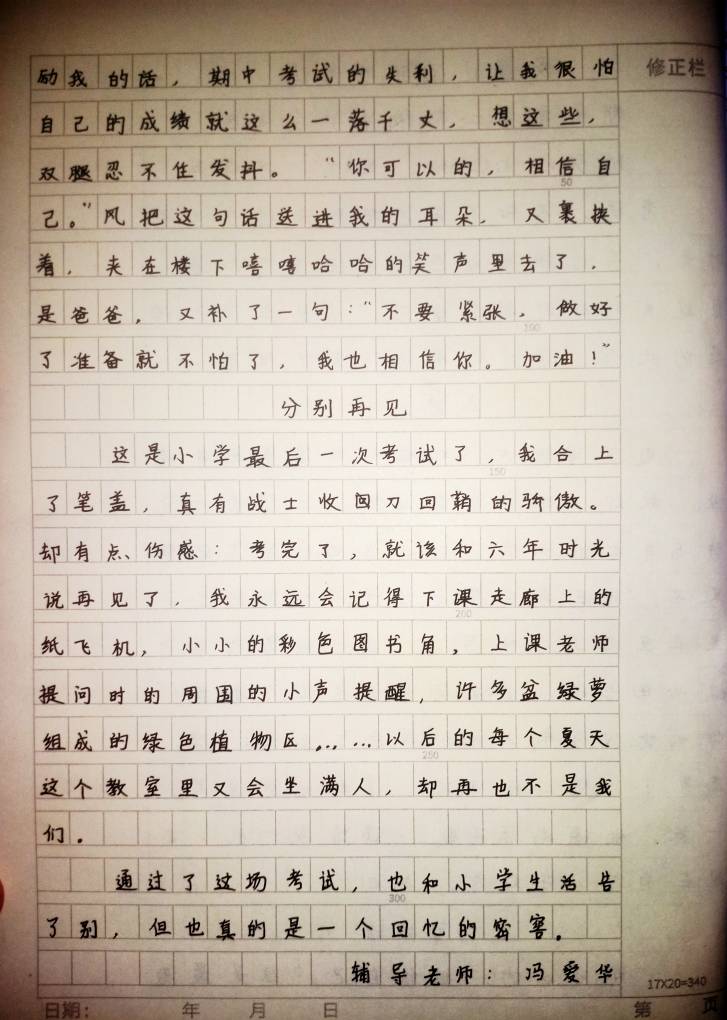 励我的话，期中考试的失利，让我很怕
修正栏
自己的成绩就这么一落千丈，想这些，
双腿忍不住发抖。“你可以的，相信自
50
己。”风把这句话送进我的耳朵，又裹挟
着，夹在楼下嘻嘻哈哈的笑声里去了，
是爸爸，又补了一句：“不要紧张，做好
100
了准备就不怕了，我也相信你。加油！”
分别再见
这是小学最后一次考试了，我合上
150
了笔盖，真有战士收回刀回鞘的骄傲。
却有点伤感：考完了，就该和六年时光
说再见了，我永远会记得下课走廊上的
200
纸飞机，小小的彩色图书角，上课老师
提问时的周围的小声提醒，许多盆绿萝
组成的绿色植物区……以后的每个夏天
250
这个教室里又会坐满人，却再也不是我
们。
通过了这场考试，也和小学生活告
300
了别，但也真的是一个回忆的密窖。
辅导老师：冯爱华
17X20=340
日期： 年 月 日 第 页